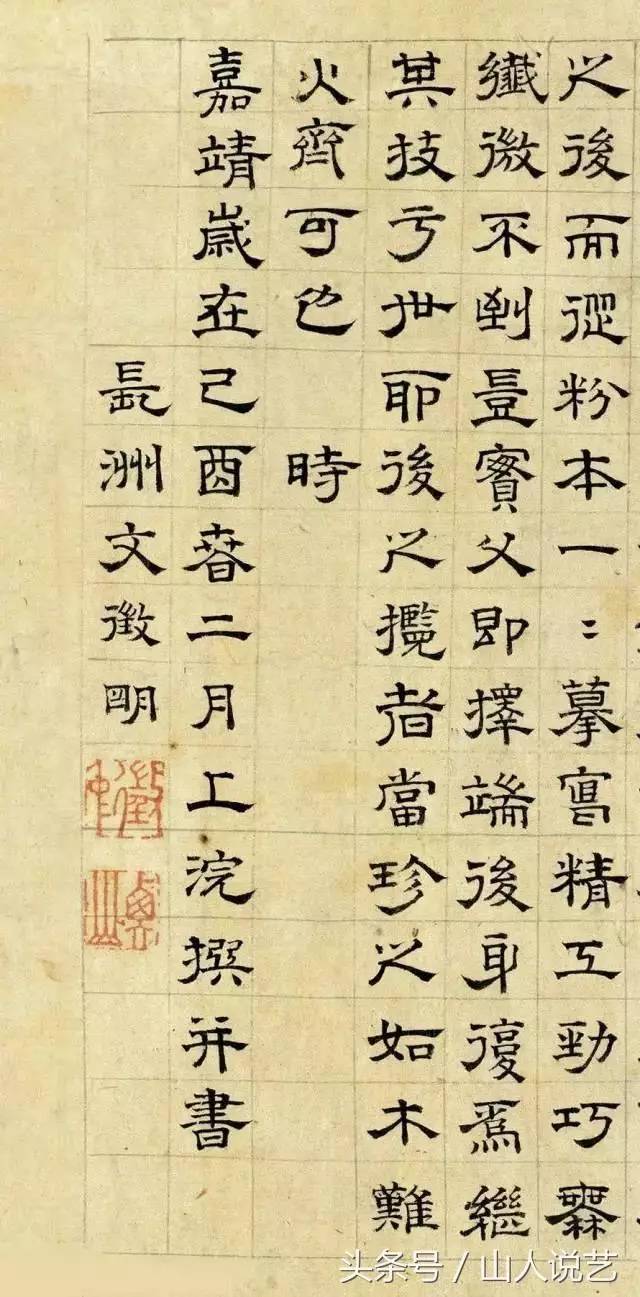 之後而從粉本一〻摹寫精工勁巧橆
纖微不到豈實父即擇端後身復爲繼
其技亏世耶後之攬者當珍之如木難
火齊可也 時
嘉靖歲在己酉春二月上浣撰并書
長洲文徵明
徵仲
衡山
头条号 / 山人说艺